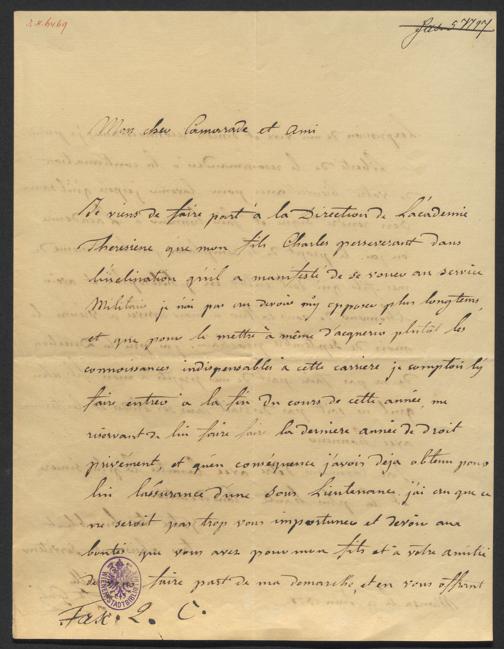 Mon cher Camarade et Ami
Je viens de faire part à la Direction de L'academie
Theresiene que mon fils Charles perseverant dans
l'inclination qu'il a manifesté de se vouer au service
Militaire je n'ai pas cru devoir m'y opposer plus longtems,
et que pour le mettre à même d'acquerir plutôt les
connoissances indispensables a cette carriere je comptois l'y
faire entrer a la fin du cours de cette année, me
réservant de lui faire faire la derniere année de droit
privément et qu'en conséquence j'avois deja obtenu pour
lui l'assurance d'une sous Lieutenance. j'ai cru que ce
ne seroit pas trop vous importuner et devoir aux
bontés que vous avez pour mon fils et à votre amitié
de faire part de ma demarche, et en vous offrant
Fax. 2. C.